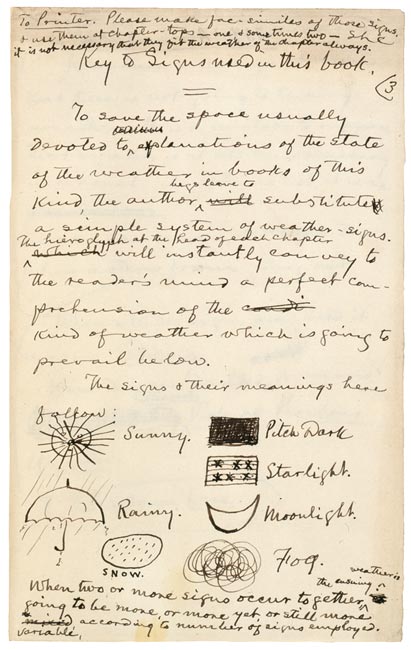 To Printer. Please make fac-similes of those signs,
& use them at chapter-tops — one & sometimes two — SLC
it is not necessary that they fit the weather of the chapter always.
Key to Signs used in this book.
3
To save the space usually
Devoted to explanations of the state
of the weather in books of this
begs leave to
Kind, the author will substitute
a simple system of weather-signs.
The hieroglyph at the head of each chapter
which will instantly convey to
the reader's mind a perfect com-
prehension of the condi
Kind of weather which is going to
prevail below.
The signs & their meanings here
follow:
Sunny. Pitch Dark
Starlight.
Rainy. Moonlight.
SNOW. Fog.
When two or more signs occur together,
the ensuing weather is
going to be more, or more yet or still more
mixed according to number of signs employed.
variable,